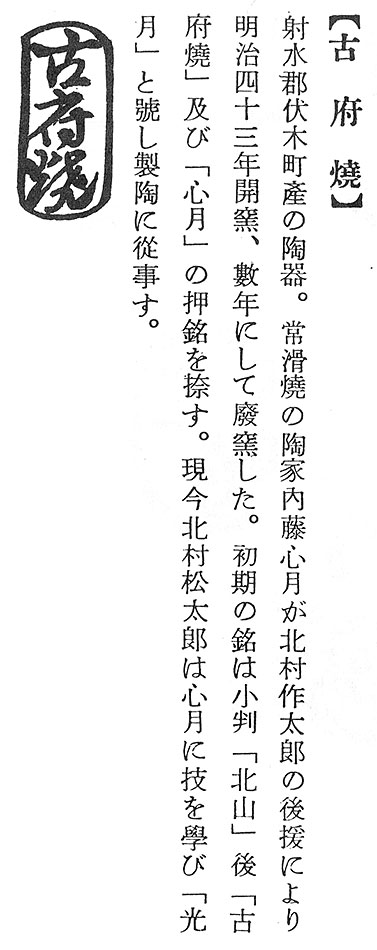 【古府燒】
射水郡伏木町產の陶器。常滑燒の陶家內藤心月が北村作太郎の後援により
明治四十三年開窯、數年にして廢窯した。初期の銘は小判「北山」後「古
府燒」及び「心月」の押銘を捺す。現今北村松太郎は心月に技を學び「光
月」と號し製陶に從事す。
古府燒